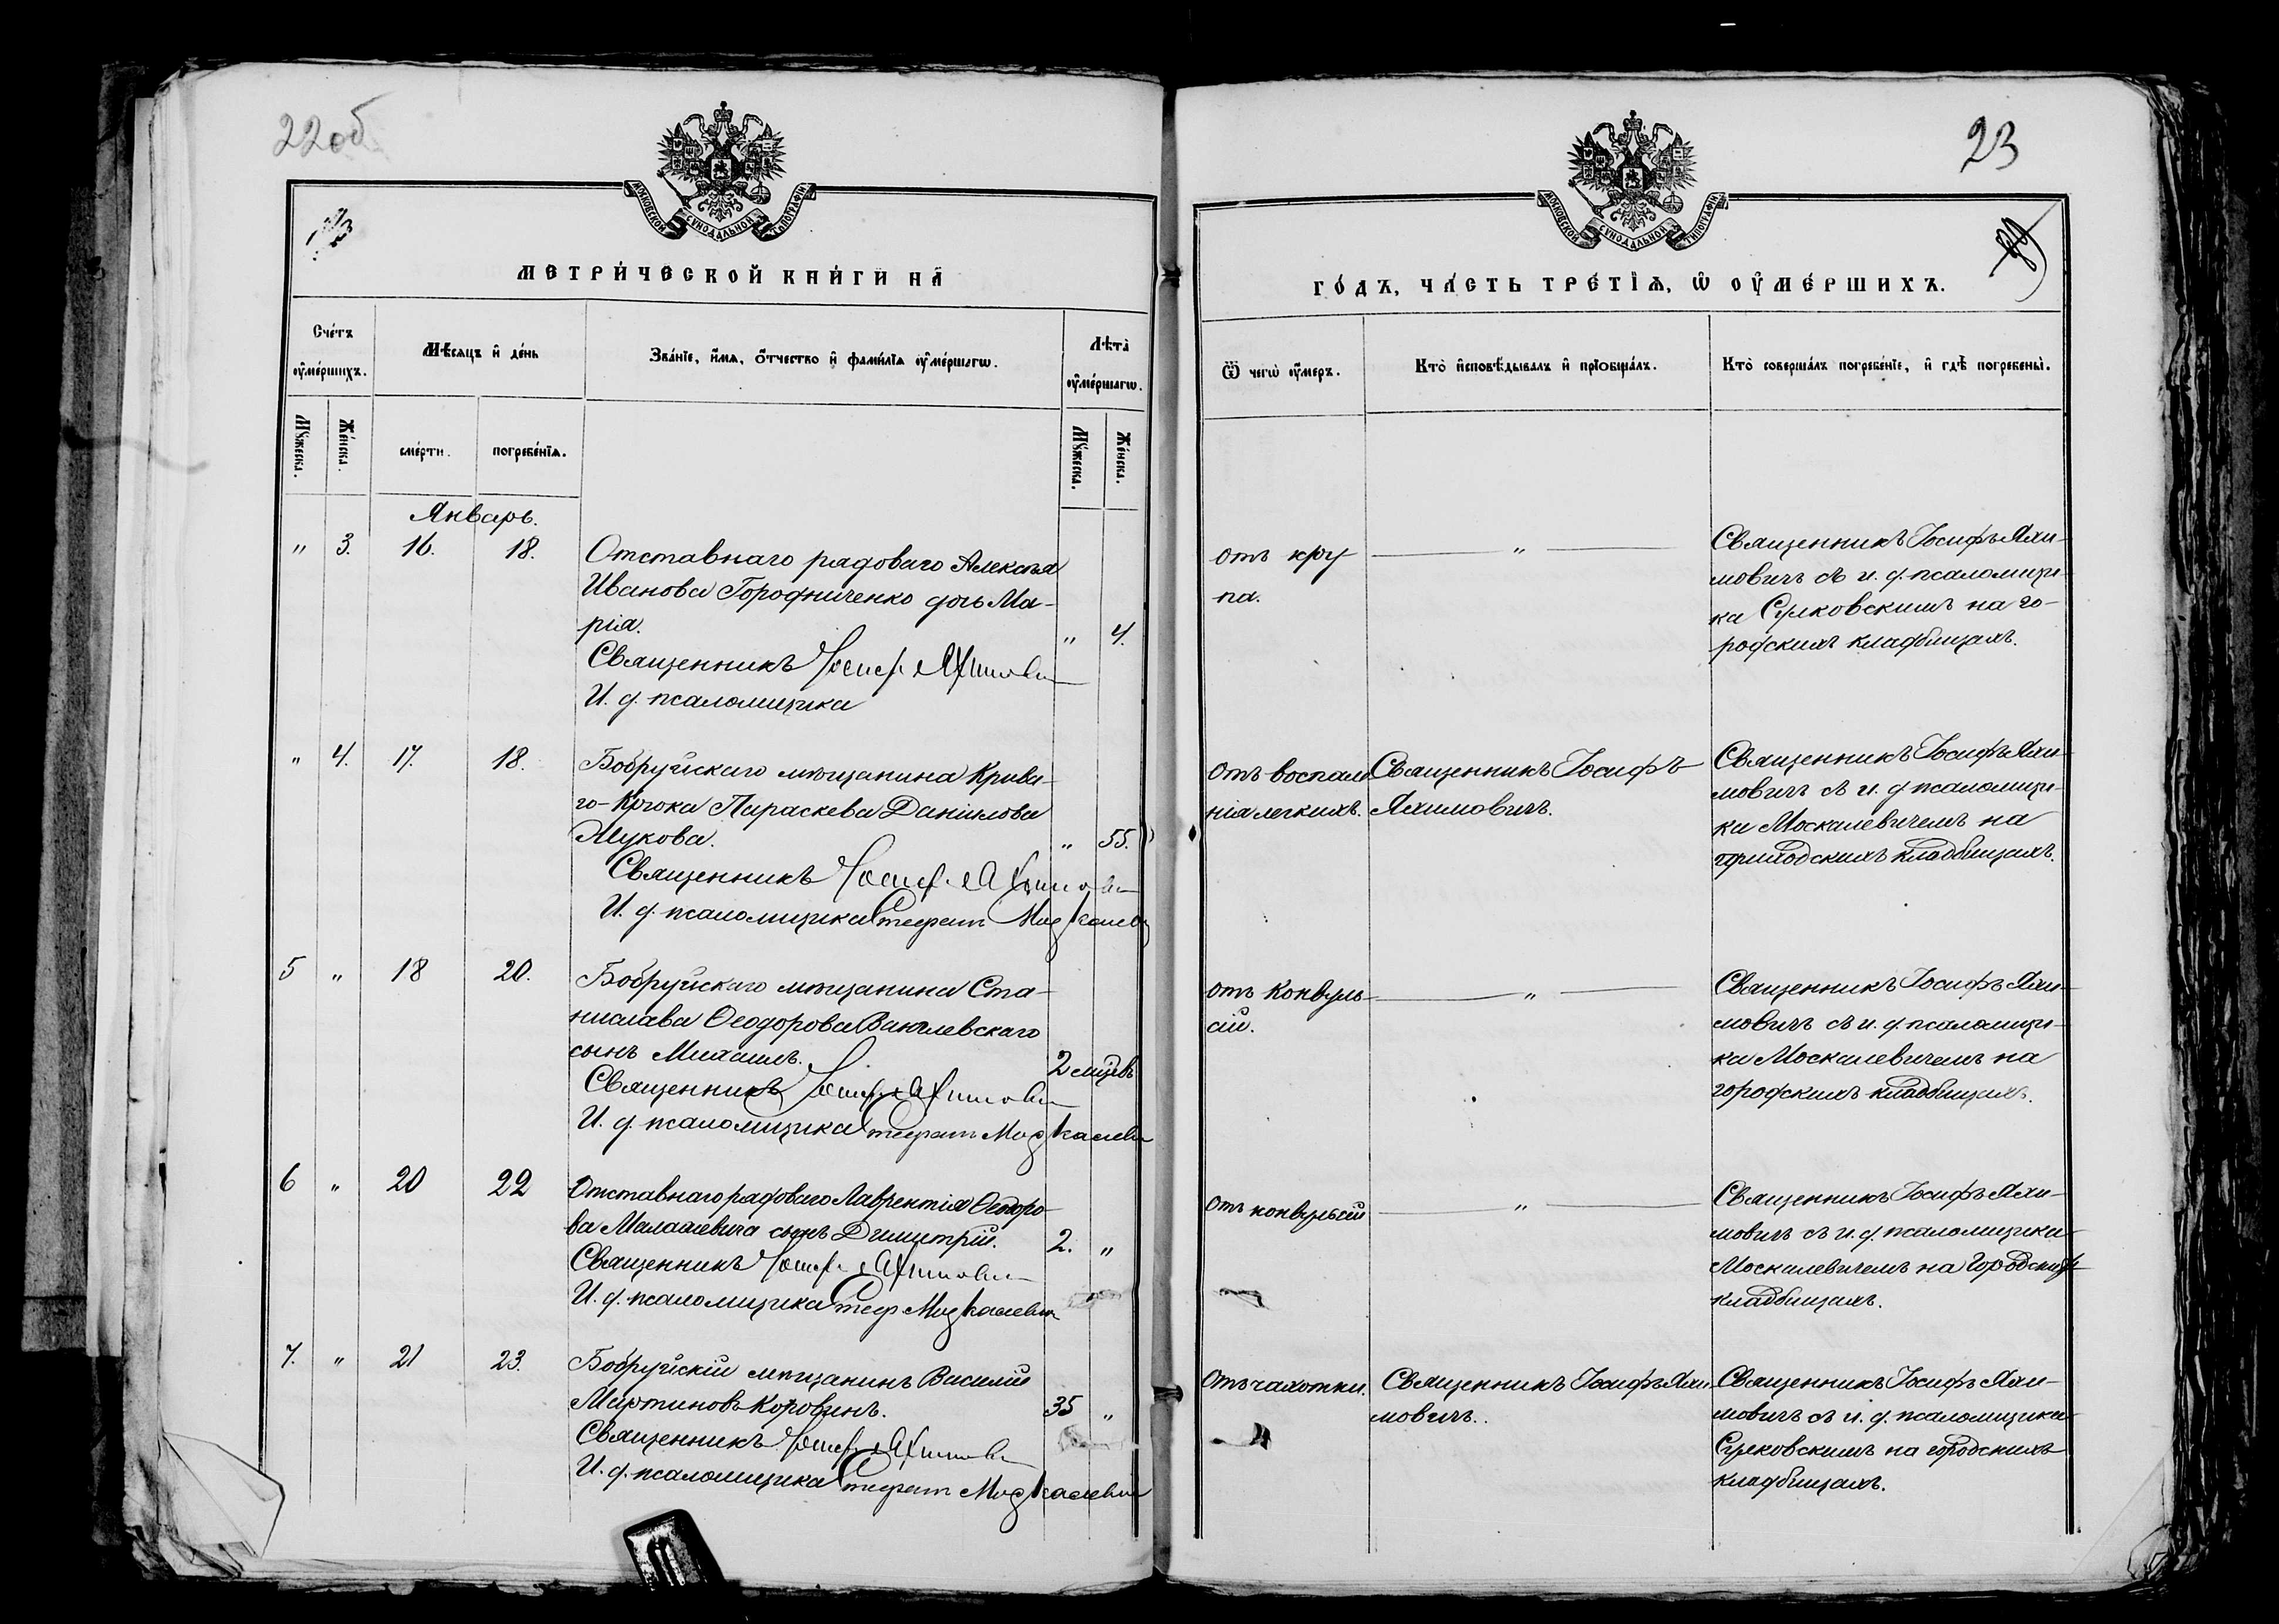 22об
23
МОСКОВСКОЙ СѴНОДАЛЬНОЙ ТИПОГРАФІИ
МОСКОВСКОЙ СѴНОДАЛЬНОЙ ТИПОГРАФІИ
МЕТРИ́ЧЕСКОЙ КНИ́ГИ НА̀
ГО́ДЪ, ЧА́СТЬ ТРЕ́ТІѦ, Ѽ ОУ҆МЕ́РШИХЪ.
Сче́тъ оу҆ме́ршихъ.
Мѣ́сяцъ и҆ де́нь
Зва́нїе, и҆́мѧ, ѻ҆́тчество и҆ фами́лїѧ оу҆ме́ршагѡ.
Лѣ́та оу҆ме́ршагѡ.
Ѿ чегѡ̀ оу҆́меръ.
Кто̀ и҆сповѣ́дывалъ и҆ прїобща́лъ.
Кто̀ соверша́лъ погребе́нїе, и҆ гдѣ̀ погребены̀.
Мꙋ́жеска.
Же́нска.
сме́рти.
погребе́нїѧ.
Мꙋ́жеска.
Же́нска.
Январь.
" 3. 16. 18. Отставнаго рядоваго Алексѣя
Иванова Городниченко дочь Ма-
рія. " 4.
Священникъ Іосиф Яхимови
И. д. псаломщика
отъ кру
па.
"
Священникъ Іосифъ Яхи-
мовичъ съ и. д. псаломщи-
ка Сулковскимъ на го-
родскихъ кладбищахъ.
" 4. 17. 18. Бобруйскаго мѣщанина Крива-
го-Крюка Параскева Данилова
Жукова. " 55.
Священникъ Іосиф Яхимови
И. д. псаломщика Стефан Москалев
отъ воспале
нія легкихъ.
Священникъ Іосифъ
Яхимовичъ.
Священникъ Іосифъ Яхи-
мовичъ съ и. д. псаломщи-
ка Москалевичемъ на
приходскихъ кладбищахъ.
5 " 18 20. Бобруйскаго мѣщанина Ста-
нислава Ѳеодорова
сынъ Михаилъ. 2 мцѣвъ
Священникъ Іосиф Яхимови
И. д. псаломщика Стефан Москалеви
отъ конвуль-
сій.
"
Священникъ Іосифъ Яхи-
мовичъ съ и. д. псаломщи-
ка Москалевичемъ на
городскихъ кладбищахъ.
6 " 20 22 Отставнаго рядоваго Лаврентія Ѳеодоро-
ва Малашевича сынъ Димитрій. 2. "
Священникъ Іосиф Яхимови
И. д. псаломщика Стеф Москалевич
отъ конвульсій
"
Священникъ Іосифъ Яхи-
мовичъ съ и. д. псаломщика
Москалевичемъ на городских
кладбищахъ.
7. " 21 23. Бобруйскій мѣщанинъ Василій
Мартиновъ Коровинъ. 35 "
Священникъ Іосиф Яхимови
И. д. псаломщика Стефан Москалевич
Отъ чахотки.
Священникъ Іосифъ Яхи-
мовичъ.
Священникъ Іосифъ Яхи-
мовичъ съ и. д. псаломщика
Сулковскимъ на городскихъ
кладбищахъ.